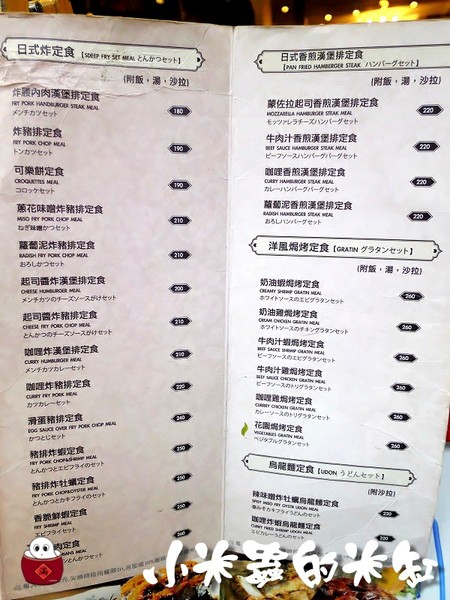 日式炸定食【SDEEP FRY SET MEAL とんかつセット】
(附飯，湯，沙拉)
炸腰內肉漢堡排定食
FRY PORK HANDBURGER STEAK MEAL
メンチカツセット
180
炸豬排定食
FRY PORK CHOP MEAL
トンカツセット
190
可樂餅定食
CROQUETTES MEAL
コロッケセット
190
蔥花味噌炸豬排定食
MISO FRY PORK CHOP MEAL
ねぎ味噌かつセット
210
蘿蔔泥炸豬排定食
RADISH FRY PORK CHOP MEAL
おろしかつセット
210
起司醬炸漢堡排定食
CHEESE HUMBURGER MEAL
メンチカツのチーズソースがけセット
200
起司醬炸豬排定食
CHEESE FRY PORK CHOP MEAL
とんかつのチーズソースがけセット
210
咖哩炸漢堡排定食
CURRY HUMBURGER MEAL
メンチカツカレーセット
210
咖哩炸豬排定食
CURRY FRY PORK MEAL
カツカレーセット
220
滑蛋豬排定食
EGG SAUCE OVER FRY PORK CHOP MEAL
かつとじセット
240
豬排炸蝦定食
FRY PORK CHOP&SHRIMP MEAL
とんかつとエビフライのセット
豬排炸牡蠣定食
FRY PORK CHOP&OYSTER MEAL
とんかつとカキフライのセット
香脆鮮蝦定食
FRY SHRIMP MEAL
エビフライセット
260
肉定食
MEAL
日式香煎漢堡排定食
【PAN FRIED HAMBERGER STEAK ハンバーグセット】
(附飯，湯，沙拉)
蒙佐拉起司香煎漢堡排定食
MOZZARELLA HAMBURGER STEAK MEAL
モッツァレラチーズハンバーグセット
220
牛肉汁香煎漢堡排定食
BEEF SAUCE HAMBURGER STEAK MEAL
ビーフソースハンバーグセット
220
咖哩香煎漢堡排定食
CURRY HAMBURGER STEAK MEAL
カレーハンバーグセット
220
蘿蔔泥香煎漢堡排定食
RADISH HAMBURGER STEAK MEAL
おろしハンバーグセット
220
洋風焗烤定食【GRATIN グラタンセット】
(附飯，湯，沙拉)
奶油蝦焗烤定食
CREAMY SHRIMP GRATIN MEAL
ホワイトソースのエビグラタンセット
260
奶油雞焗烤定食
CREAM CHICKEN GRATIN MEAL
ホワイトソースのチキングラタンセット
260
牛肉汁蝦焗烤定食
BEEF SAUCE SHRIMP GRATIN MEAL
ビーフソースのエビグラタンセット
260
牛肉汁雞焗烤定食
BEEF SAUCE CHICKEN GRATIN MEAL
ビーフソースのトリグラタンセット
260
咖哩雞焗烤定食
CURRY CHICKEN GRATIN MEAL
カレーソースのトリグラタンセット
260
花園焗烤定食
VEGETABLES GRATIN MEAL
ベジタブルグラタンセット
260
烏龍麵定食【UDON うどんセット】
(附沙拉)
辣味噌炸牡蠣烏龍麵定食
SPICY MISO FRY OYSTER UDON MEAL
辛みそカキフライうどんのセット
220
咖哩炸蝦烏龍麵定食
CURRY FRY SHRIMP UDON MEAL
220
小米蟲的米缸